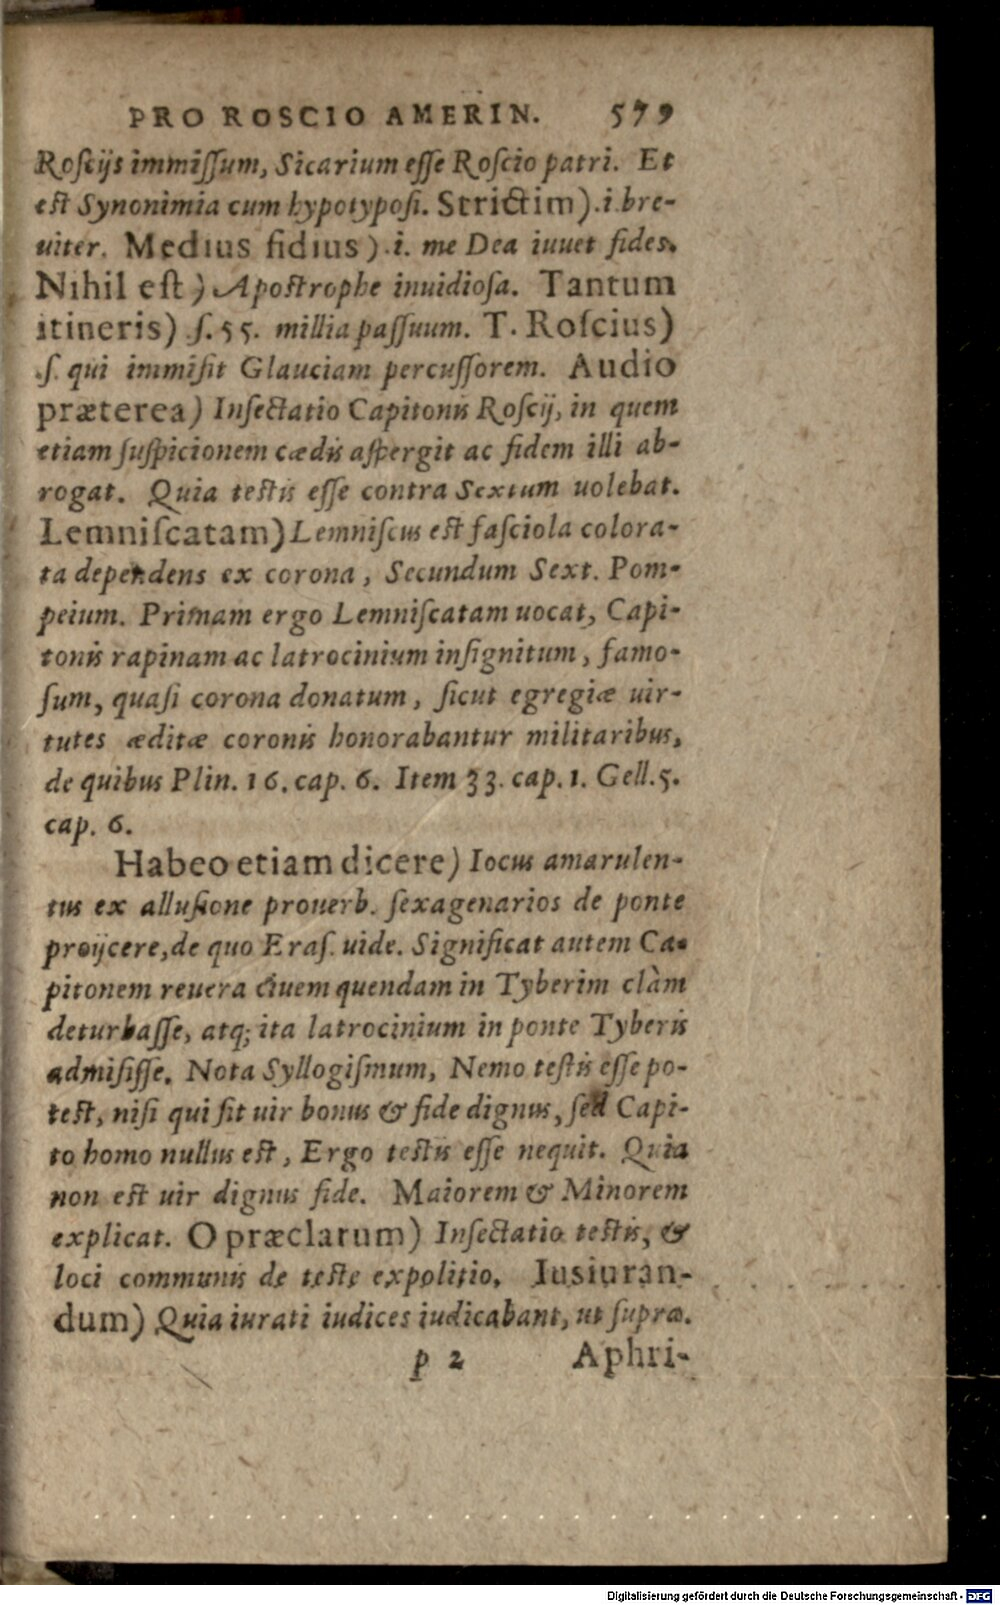 PRO ROSCIO AMERIN. 579
Roſcijs immiſſum, Sicarium eſſe Roſcio patri. Et
eſt Synonimia cum hypotypoſi. Strictim).i.bre-
uiter. Medius fidius).i. me Dea iuuet fides.
Nihil eſt) Apoſtrophe inuidioſa. Tantum
itineris) ſ.55. millia paſſuum. T. Roſcius)
.ſ. qui immiſit Glauciam percuſſorem. Audio
præterea) Inſectatio Capitonis Roſcij, in quem
etiam ſuſpicionem cædis aſpergit ac fidem illi ab-
rogat. Quia teſtis eſſe contra Sextum uolebat.
Lemniſcatam) Lemniſcus eſt faſciola colora-
ta dependens ex corona, Secundum Sext. Pom-
peium. Primam ergo Lemniſcatam uocat, Capi-
tonis rapinam ac latrocinium inſignitum, famo-
ſum, quaſi corona donatum, ſicut egregiæ uir-
tutes æditæ coronis honorabantur militaribus,
de quibus Plin. 16. cap. 6. Item 33. cap. 1. Gell. 5.
cap. 6.
Habeo etiam dicere) Iocus amarulen-
tus ex alluſione prouerb. ſexagenarios de ponte
proijcere, de quo Eraſ. uide. Significat autem Ca-
pitonem reuera ciuem quendam in Tyberim clàm
deturbaſſe, atq; ita latrocinium in ponte Tyberis
admiſiſſe. Nota Syllogiſmum, Nemo teſtis eſſe po-
teſt, niſi qui ſit uir bonus & fide dignus, ſed Capi-
to homo nullus eſt, Ergo teſtis eſſe nequit. Quia
non eſt uir dignus fide. Maiorem & Minorem
explicat. O præclarum) Inſectatio teſtis, &
loci communis de teſte expolitio. Iusiuran-
dum) Quia iurati iudices iudicabant, ut ſupra.
p 2 Aphri-
Digitalisierung gefördert durch die Deutsche Forschungsgemeinschaft - DFG